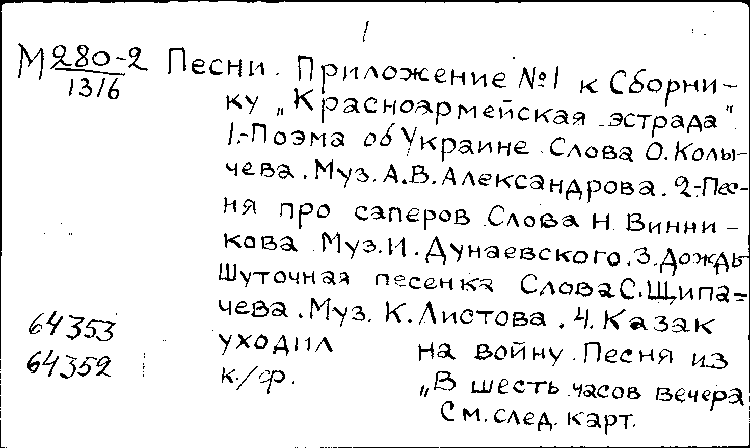 1
М280-2 Песни. Приложение №1 к Сборни-
1316
ку „Красноармейская эстрада"
1.-Поэма об Украине Слова О. Колы-
чева. Муз. А.В. Александрова. 2-Пес-
ня про саперов Слова Н Винни-
кова Муз. И. Дунаевского. 3. Дождь
Шуточная песенка Слова С. Щипа-
чева. Муз. К. Листова. 4. Казак
64353 уходил на войну. Песня из
64352 к./ф. „В шесть часов вечера
См. след. карт.